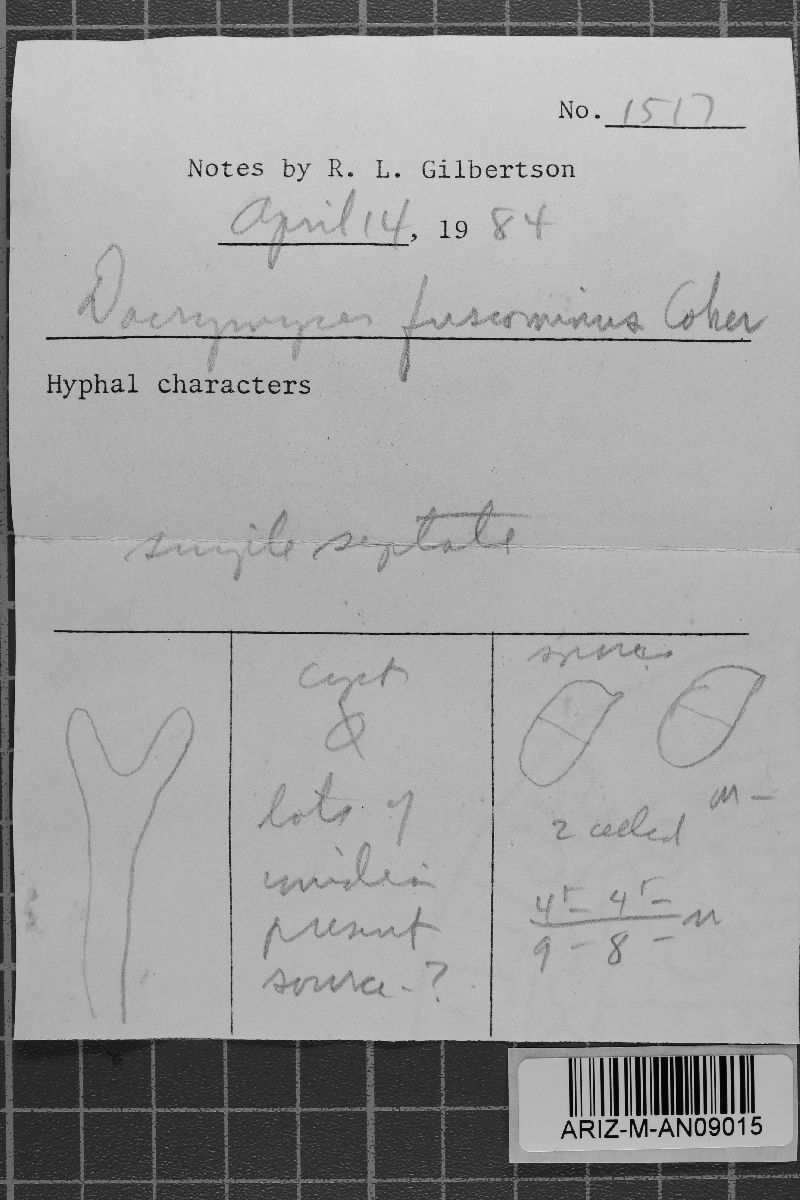 No. 1517
Notes by R. L. Gilbertson
April 14, 19 84
Dacrymyces fuscominus Coker
Hyphal characters
simple septate
cyst
lots of
conidia
present
source - ?
spores
2 celled
4⁵ - 4⁵ -
9 - 8 -
ARIZ-M-AN09015